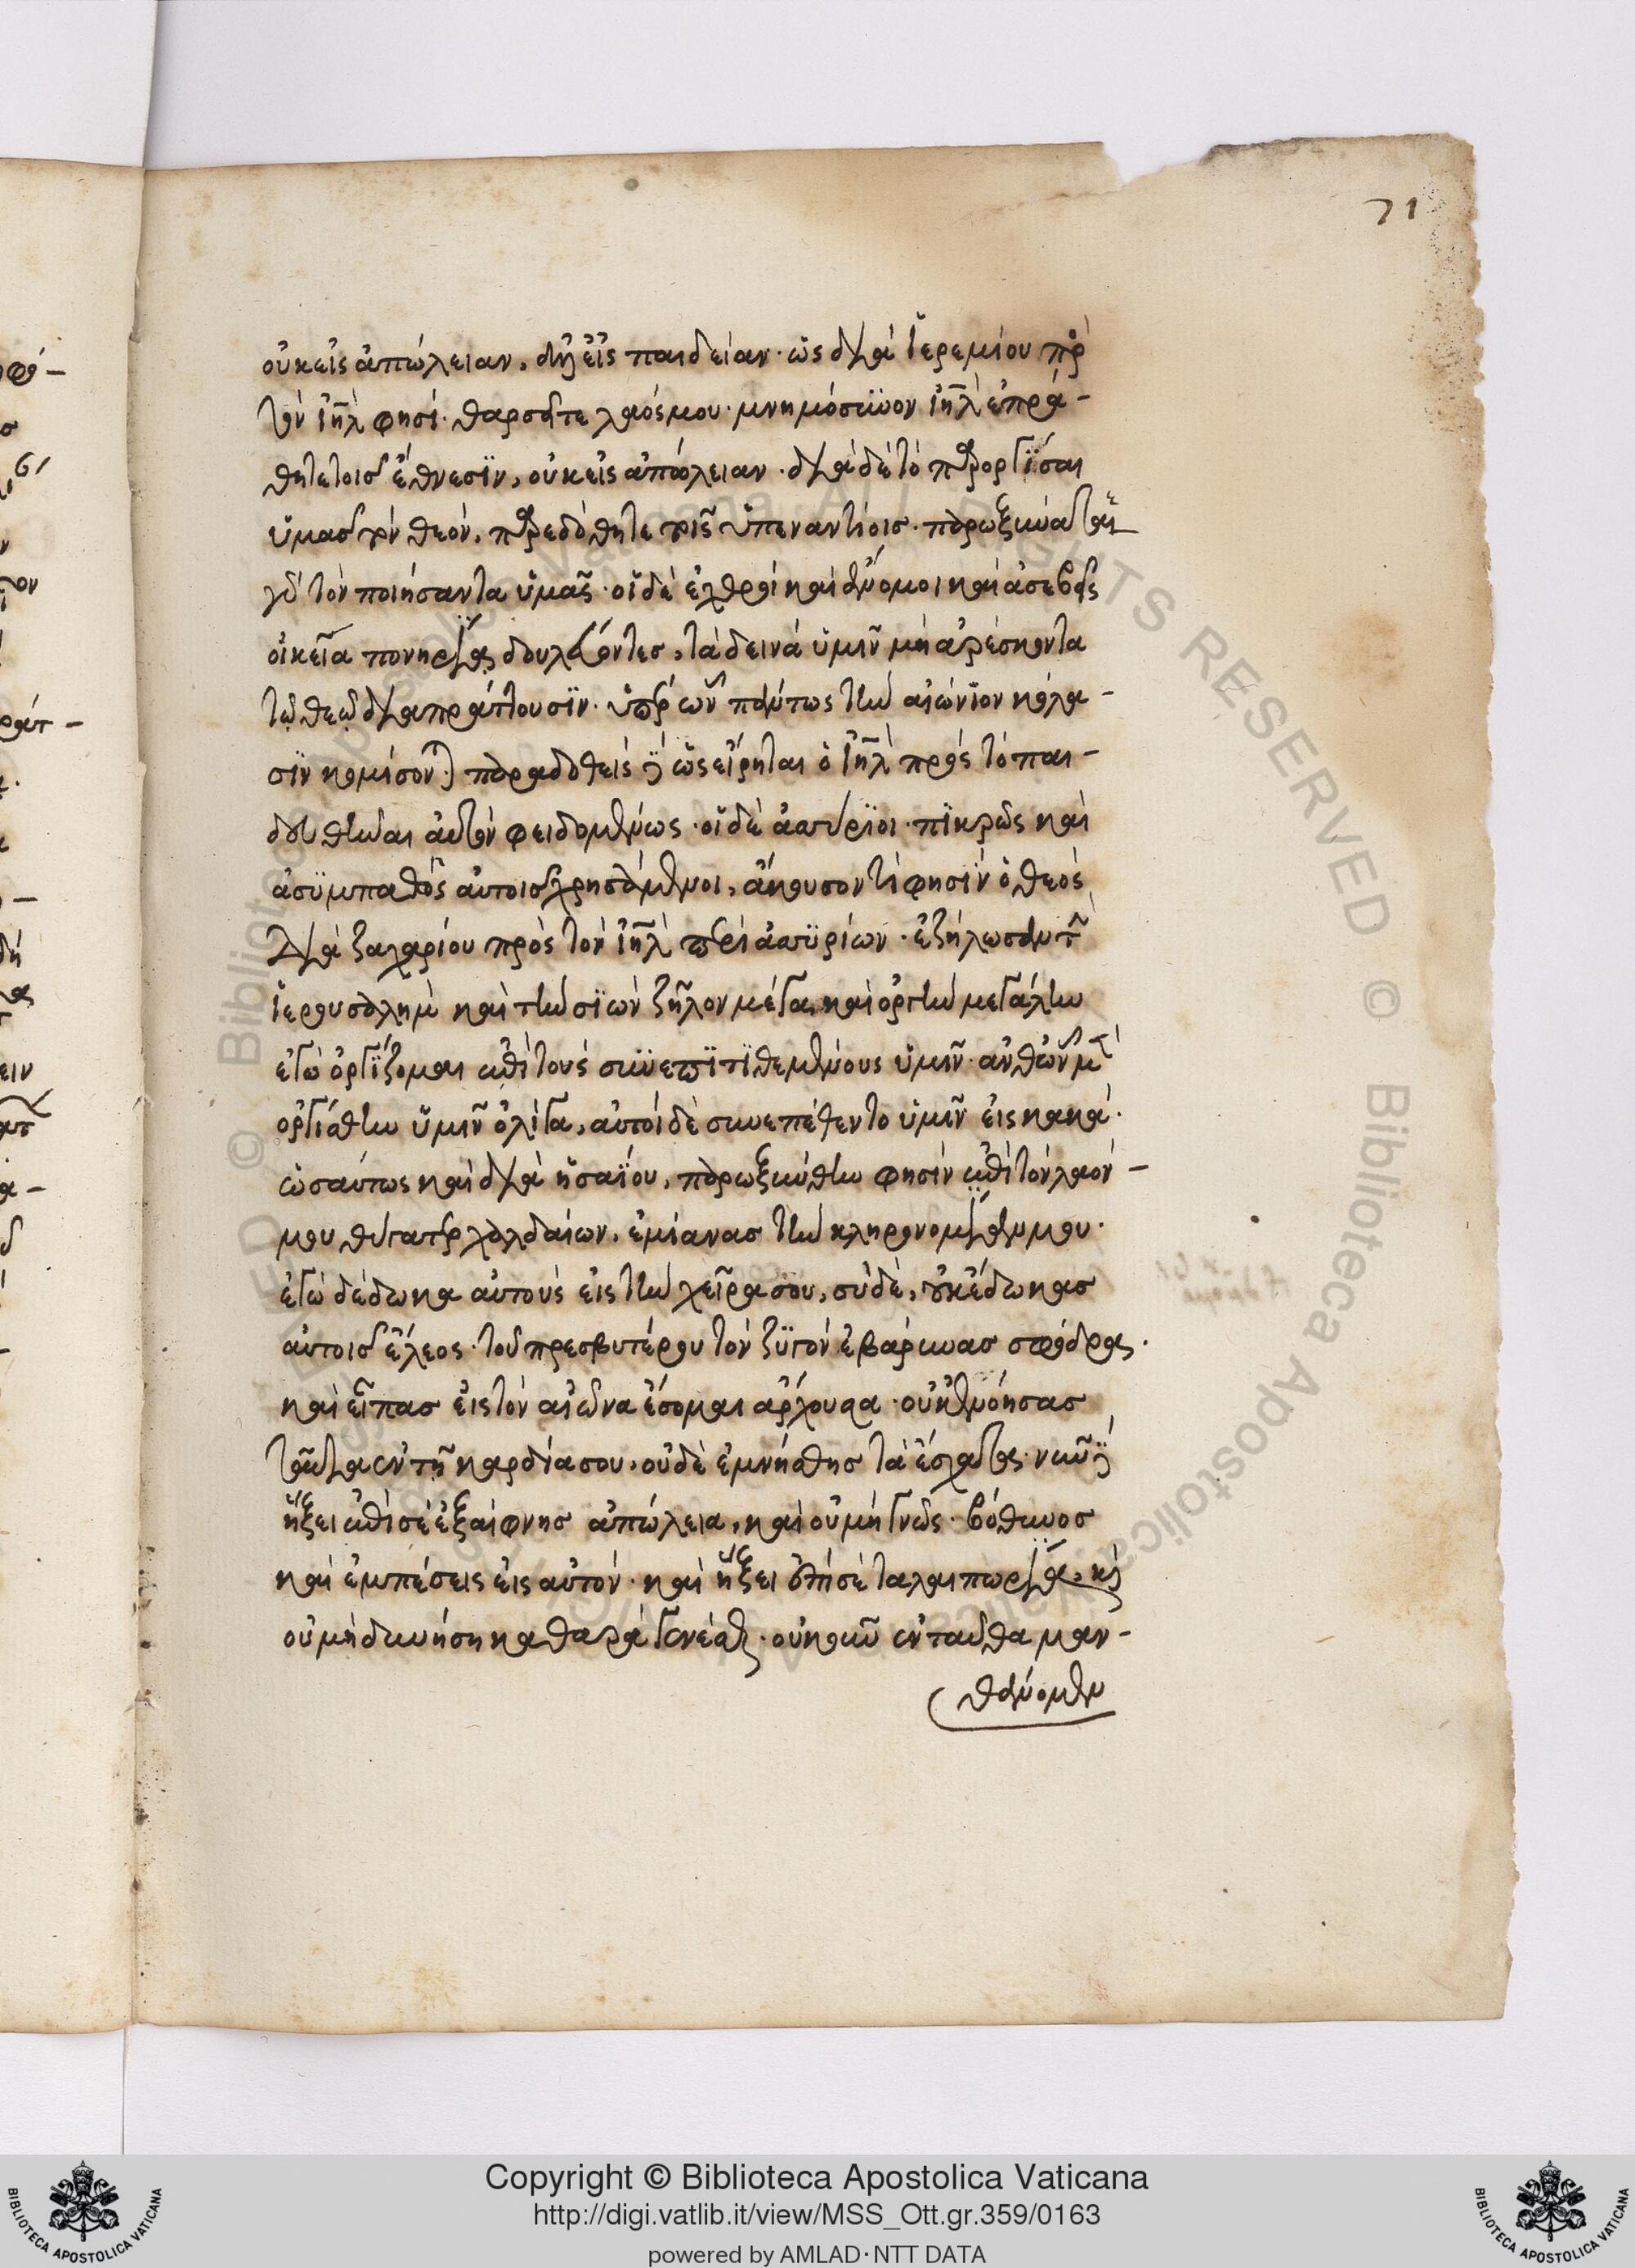 71
οὐκ εἰς ἀπώλειαν, ἀλλ' εἰς παιδείαν· ὡς διὰ Ἰερεμίου πρὸς
τὸν ἰηλ φησί· θαρσεῖτε λαός μου· μνημόσυνον ἰηλ ἐπρά-
θητε τοῖς ἔθνεσϊν, οὐκ εἰς ἀπώλειαν· διὰ δὲ τὸ παροργΐσαι
ὑμᾶς τὸν θεόν, παρεδόθητε τοῖς ὑπεναντίοις· παρωξύνατε
γὰρ τὸν ποιήσαντα ὑμᾶς· οἱ δὲ ἐχθροὶ καὶ ἄνομοι καὶ ἀσεβεῖς
οἰκεῖα πονηρίας δουλεύοντες, τὰ δεινὰ ὑμῖν μὴ ἀρέσκοντα
τῷ θεῷ διαπράττουσϊν· ὑπὲρ ὧν πάντως τὴν αἰώνϊον κόλα-
σϊν κομίσονται παραδοθεὶς γὰρ ὡς εἴρηται ὁ ἰηλ πρὸς τὸ παι-
δευθῆναι αὐτὸν φειδομένως· οἱ δὲ ἀσσύρϊοι· πϊκρῶς καὶ
ἀσϋμπαθῶς αὐτοῖς χρησάμενοι, ἄκουσον τί φησϊν ὁ θεὸς
διὰ ζαχαρίου πρὸς τὸν ἰηλ περὶ ἀσσϋρίων· ἐζήλωσα τὴν
Ἰερουσαλὴμ καὶ τὴν σϊὼν ζῆλον μέγα, καὶ ὀργὴν μεγάλην
ἐγὼ ὀργΐζομαι ἐπὶ τοὺς συνεπϊτϊθεμένους ὑμῖν· ἀνθ' ὧν μὲν
ὠργίσθην ὑμῖν ὀλίγα, αὐτοὶ δὲ συνεπέθεντο ὑμῖν εἰς κακά·
ὡσαύτως καὶ διὰ ἡσαΐου, παρωξύνθην φησϊν ἐπὶ τὸν λαόν-
μου θύγατερ χαλδαίων, ἐμίανας τὴν κληρονομίαν μου·
ἐγὼ δέδωκα αὐτοὺς εἰς τὴν χεῖρα σου, σὺ δὲ, οὐκ ἔδωκας
αὐτοῖς ἔλεος· τοῦ πρεσβυτέρου τὸν ζϋγὸν ἐβάρυνας σφόδρα·
καὶ εἶπας εἰς τὸν αἰῶνα ἔσομαι ἄρχουσα· οὐκ ἐνόησας
ταῦτα ἐν τῇ καρδία σου, οὐδὲ ἐμνήσθης τὰ ἔσχατα· νῦν γὰρ
ἥξει ἐπὶ σὲ ἐξαίφνης ἀπώλεια, καὶ οὐ μὴ γνῷς· βόθυνος
καὶ ἐμπέσεις εἰς αὐτόν· καὶ ἥξει ἐπὶ σὲ ταλαιπωρία, καὶ
οὐ μὴ δυνήσῃ καθαρὰ γενέσθαι· οὐκοῦν ἐνταῦθα μαν-
θάνομεν
Copyright © Biblioteca Apostolica Vaticana
http://digi.vatlib.it/view/MSS_Ott.gr.359/0163
powered by AMLAD·NTT DATA